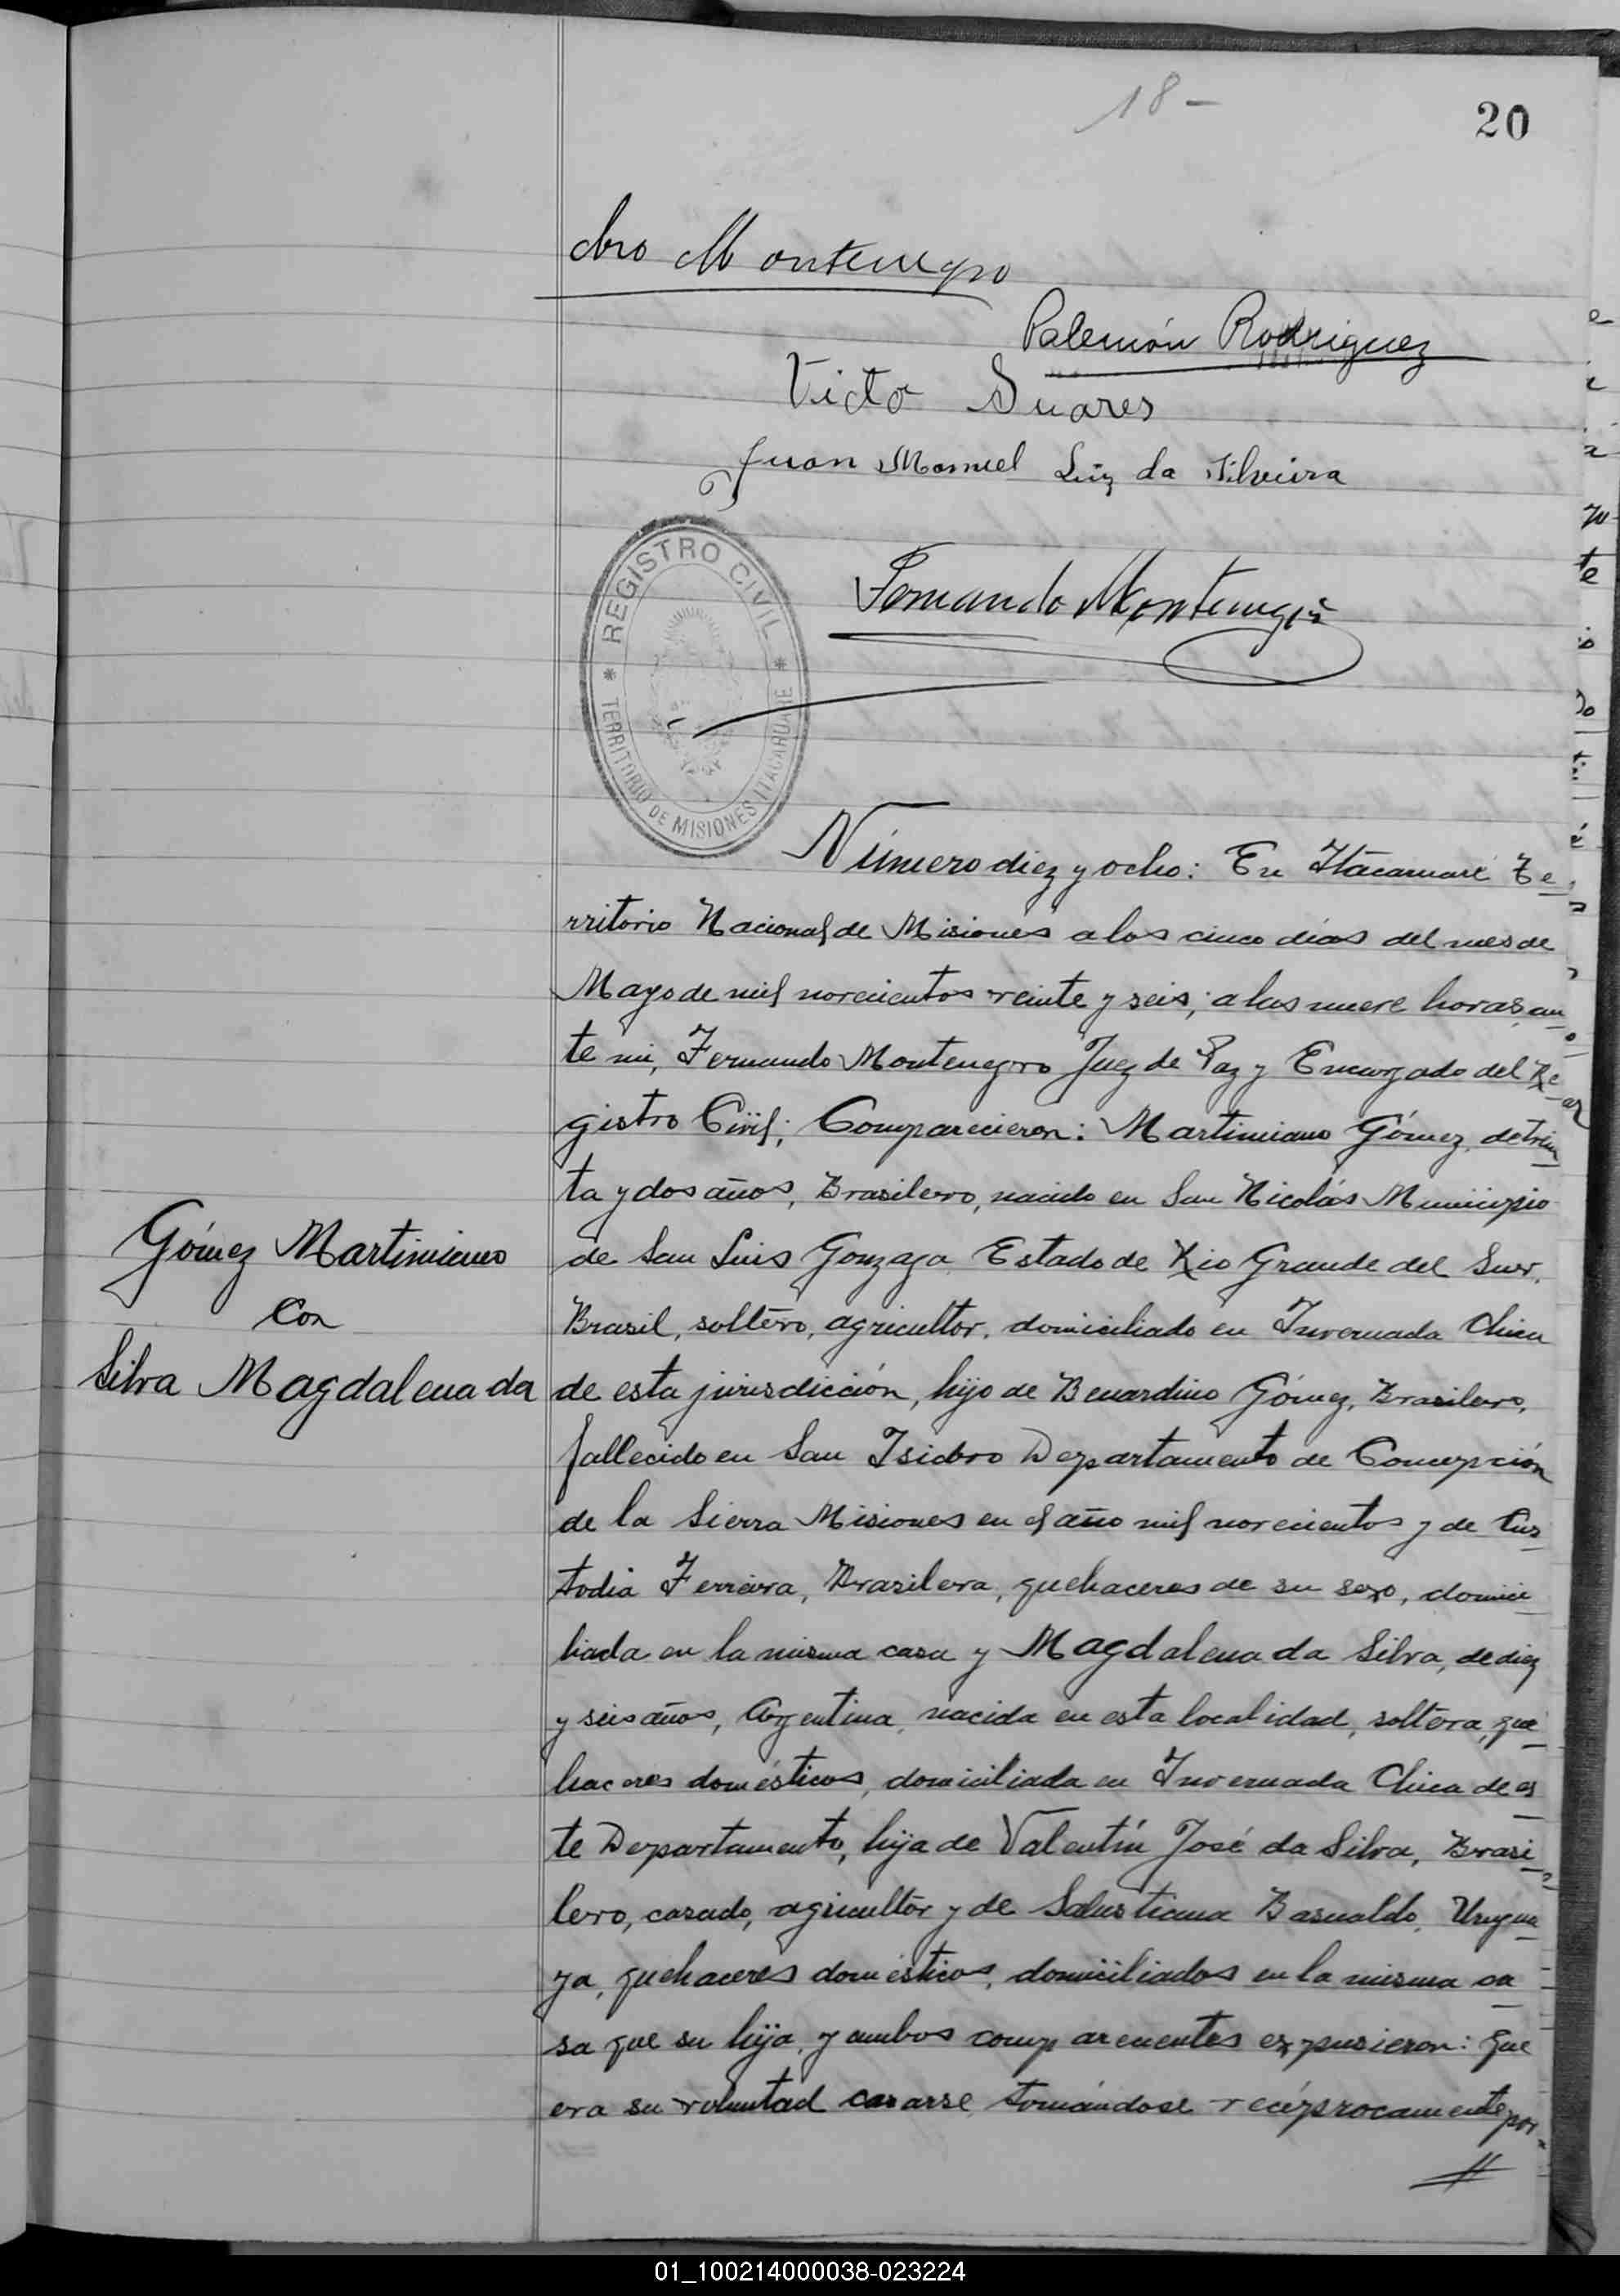 18-
20
dro Montenegro
Palemón Rodriguez
Victo Suares
Juan Manuel Luiz da Silveira
REGISTRO CIVIL
TERRITORIO DE MISIONES ITACARUARE
Fernando Montenegro
Número diez y ocho: En Itacaruaré Te
rritorio Nacional de Misiones a los cinco días del mes de
Mayo de mil novecientos veinte y seis, a las nueve horas, an
te mi, Fernando Montenegro Juez de Paz y Encargado del Re
gistro Civil; Comparecieron: Martimiano Gómez, de trein
ta y dos años, Brasilero, nacido en San Nicolás Municipio
Gómez Martimiano
de San Luis Gonzaga Estado de Rio Grande del Sur,
Con
Brasil, soltero, agricultor, domiciliado en Invernada Chica
Silva Magdalena da
de esta jurisdicción, hijo de Benardino Gómez, Brasilero,
fallecido en San Isidro Departamento de Concepción
de la Sierra Misiones en el año mil novecientos y de Cus
todia Ferreira, Brazilera, quehaceres de su sexo, domici
liada en la misma casa y Magdalena da Silva, de diez
y seis años, Argentina, nacida en esta localidad, soltera, que
haceres domésticos, domiciliada en Invernada Chica de es
te Departamento, hija de Valentín José da Silva, Brasi
lero, casado, agricultor y de Salustiana Basualdo, Urugua
ya, quehaceres domésticos, domiciliados en la misma ca
sa que su hija, y ambos comparecientes expusieron: que
era su voluntad casarse tomándose recíprocamente por
01_100214000038-023224